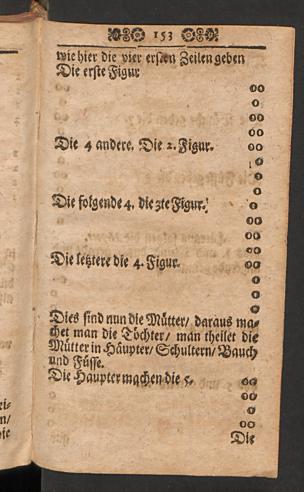 153
wie hier die vier ersten Zeilen geben
Die erste Figur
oo
o
oo
oo
Die 4 andere. Die 2. Figur.
oo
o
o
o
Die folgende 4. die 3te Figur.
o
oo
oo
oo
Die letztere die 4. Figur.
oo
o
o
o
Dies sind nun die Mütter/ daraus ma-
chet man die Töchter/ man theilet die
Mütter in Häupter/ Schultern/ Bauch
und Füsse.
Die Häupter machen die 5.
oo
oo
o
oo
Die